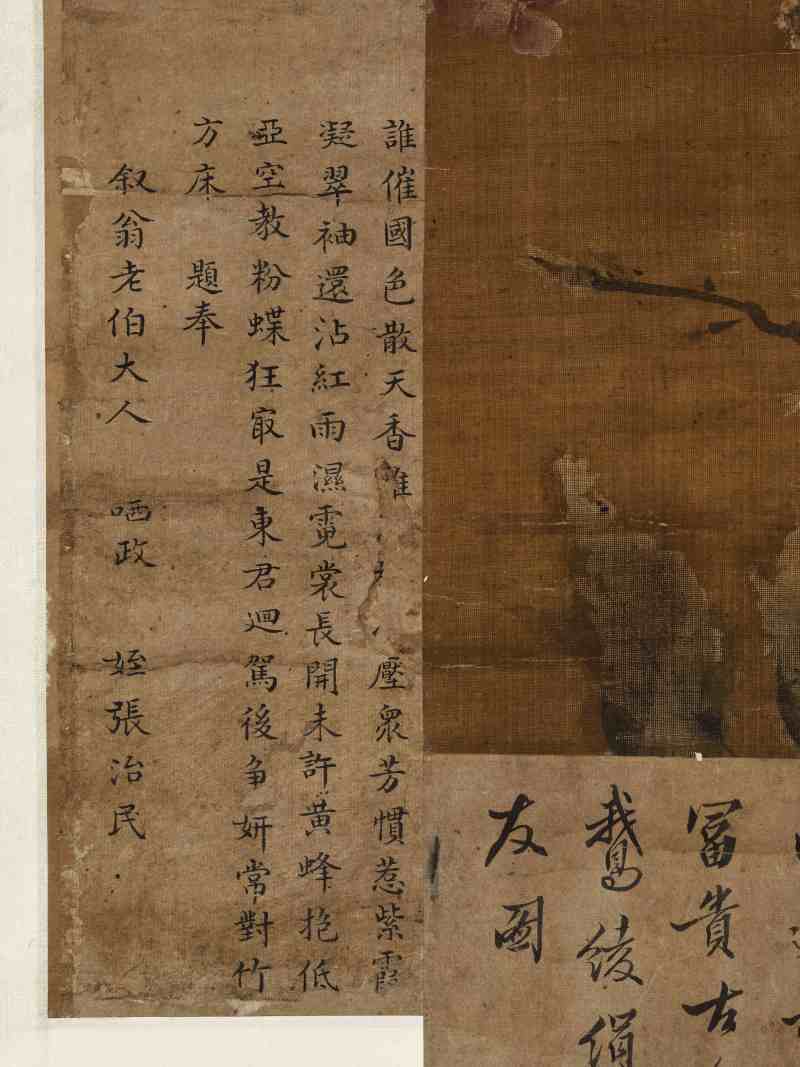 誰催國色散天香 壓衆芳慣惹紫霞
凝翠袖還沾紅雨濕霓裳長開未許黄蜂抱低
亞空教粉蝶狂㝡是東君迴駕後争妍常對竹
方床 題奉
叙翁老伯大人 哂政 姪張治民
富貴古
鵞綾絹
友圖